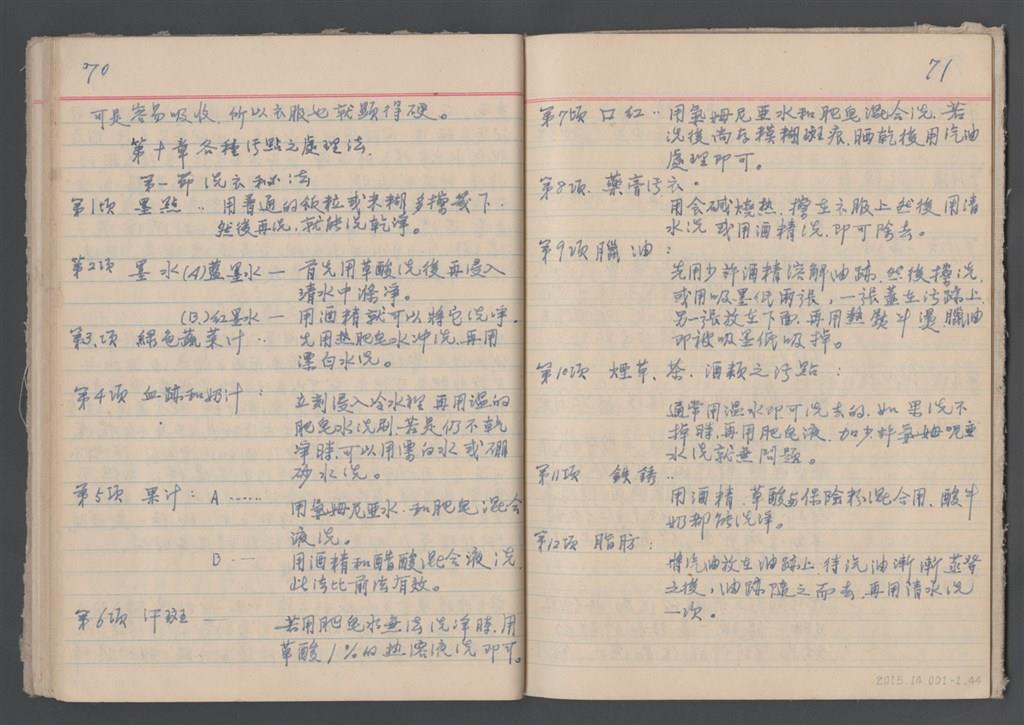 70
可是容易吸收，所以衣服也就顯得硬。
第十章各種污點之處理法
第一節 洗衣秘法
第1項 墨點‥用普通的飯粒或米糊多擦幾下，
然後再洗，就能洗乾淨。
第2項 墨水(A)藍墨水— 首先用草酸洗後再浸入
清水中滌淨。
(B.)紅墨水— 用酒精就可以將它洗淨。
第3.項 綠色蔬菜汁‥ 先用热肥皂水冲洗，再用
漂白水洗。
第4項 血跡和奶汁： 立刻浸入冷水裡 再用溫的
肥皂水洗刷，若是仍不乾
淨時，可以用漂白水或硼
砂水洗。
第5項 果汁：A ……
用氨姆尼亞水，和肥皂混合
液洗。
B ·— 用酒精和醋酸混合液洗，
此法比前法有效。
第6項 汗斑 — 若用肥皂水無法洗淨時，用
草酸1%的热溶液洗即可。
71
第7項 口红‥用氨姆尼亞水和肥皂混合洗，若
洗後尚存模糊斑痕，晒乾後用汽油
處理即可。
第8項．藥膏污衣。
用会碱燒热，擦在衣服上然後用清
水洗 或用酒精洗，即可除去。
第9項 臘油：
先用少許酒精溶解油跡，然後擦洗，
或用吸墨低兩張，一張蓋在污跡上，
另一張放在下面，再用热熨斗燙，臘油
即被吸墨低吸掉。
第10項 煙草、茶、酒類之污點：
通常用溫水即可洗去的，如果洗不
掉時，再用肥皂液，加少許氨姆呢亜
水洗就無問題。
第11項 鉄銹‥
用酒精，草酸与保險粉混合用，酸牛
奶都能洗淨。
第12項 脂肪：
將汽油放在油跡上，待汽油漸漸蒸發
之後，油跡隨之而去，再用清水洗
一次。
2015.14.001-1.44